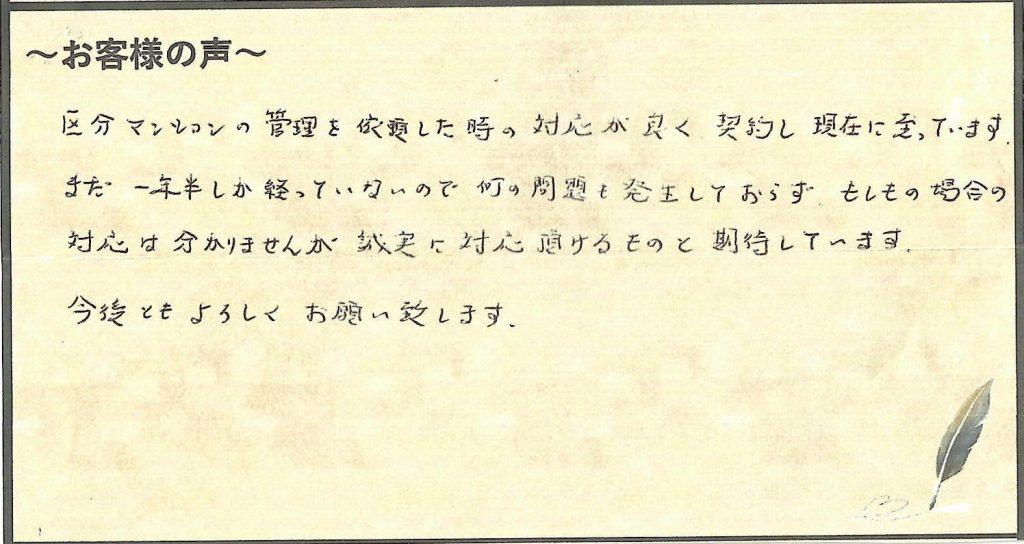 ～お客様の声～
区分マンションの管理を依頼した時の対応が良く契約し現在に至っています。
まだ一年半しか経っていないので何の問題も発生しておらず、もしもの場合の
対応は分かりませんが誠実に対応頂けるものと期待しています。
今後ともよろしくお願い致します。